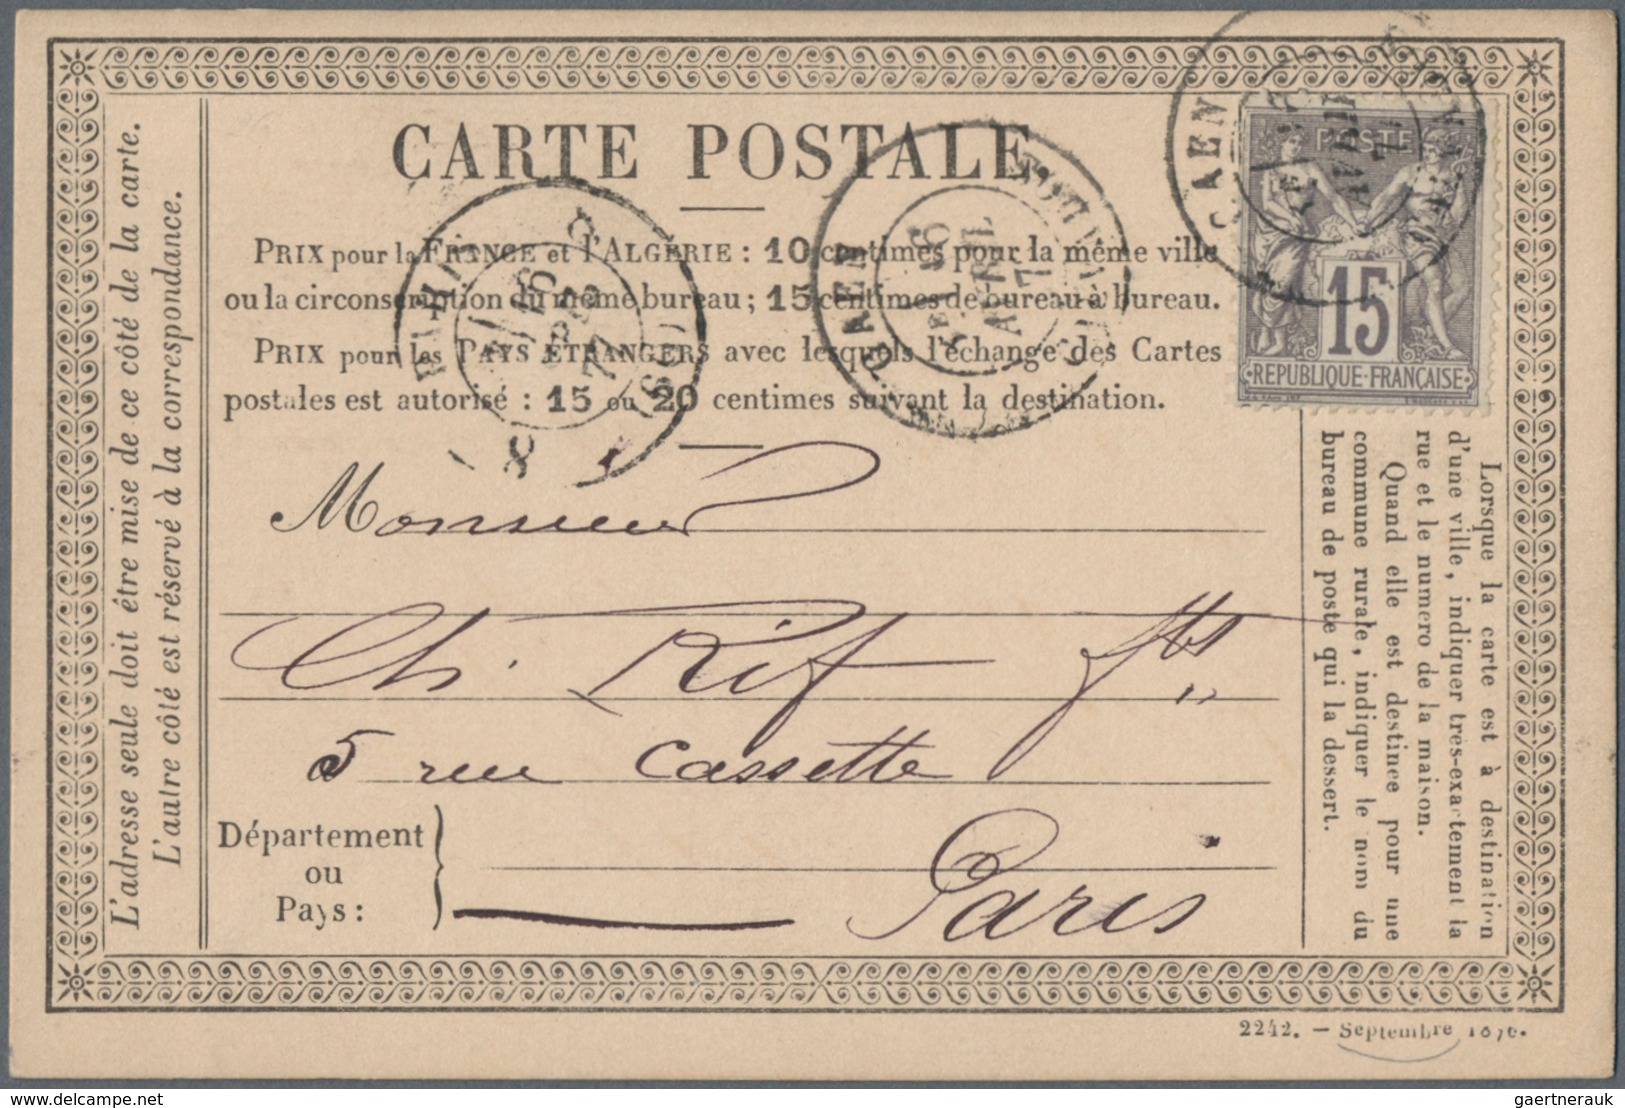 CARTE POSTALE
PRIX pour la FRANCE et l'ALGÉRIE : 10 centimes pour la même ville
ou la circonscription du même bureau ; 15 centimes de bureau à bureau.
PRIX pour les PAYS ÉTRANGERS avec lesquels l'échange des Cartes
postales est autorisé : 15 ou 20 centimes suivant la destination.
L'adresse seule doit être mise de ce côté de la carte.
L'autre côté est réservé à la correspondance.
CAEN
POSTE
15
REPUBLIQUE·FRANÇAISE
CAEN
16
AVRIL
PARIS
16
77
8
Monsieur
Ch. Rif fts
5 rue Cassette
Département
ou
Pays :
Paris
Lorsque la carte est à destination
d'une ville, indiquer très-exactement la
rue et le numero de la maison.
Quand elle est destinee pour une
commune rurale, indiquer le nom du
bureau de poste qui la dessert.
2242. — Septembre 1876.
www.delcampe.net
gaertnerauk